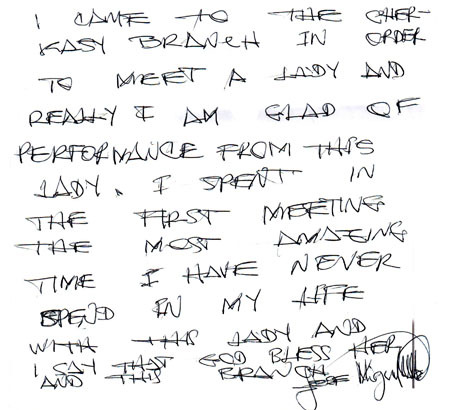 I CAME TO THE CHER-
KASY BRANCH IN ORDER
TO MEET A LADY AND
REALLY I AM GLAD OF
PERFORMANCE FROM THIS
LADY. I SPENT IN
THE FIRST MEETING
THE MOST AMAZING
TIME I HAVE NEVER
SPEND IN MY LIFE
WITH THIS LADY AND
I SAY THAT GOD BLESS HER
AND THIS BRANCH